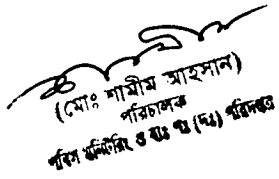 (মোঃ শামীম আহসান)
পরিচালক
পল্লী মনিটরিং ও ব্যঃ পঃ (দঃ) পরিদপ্তর